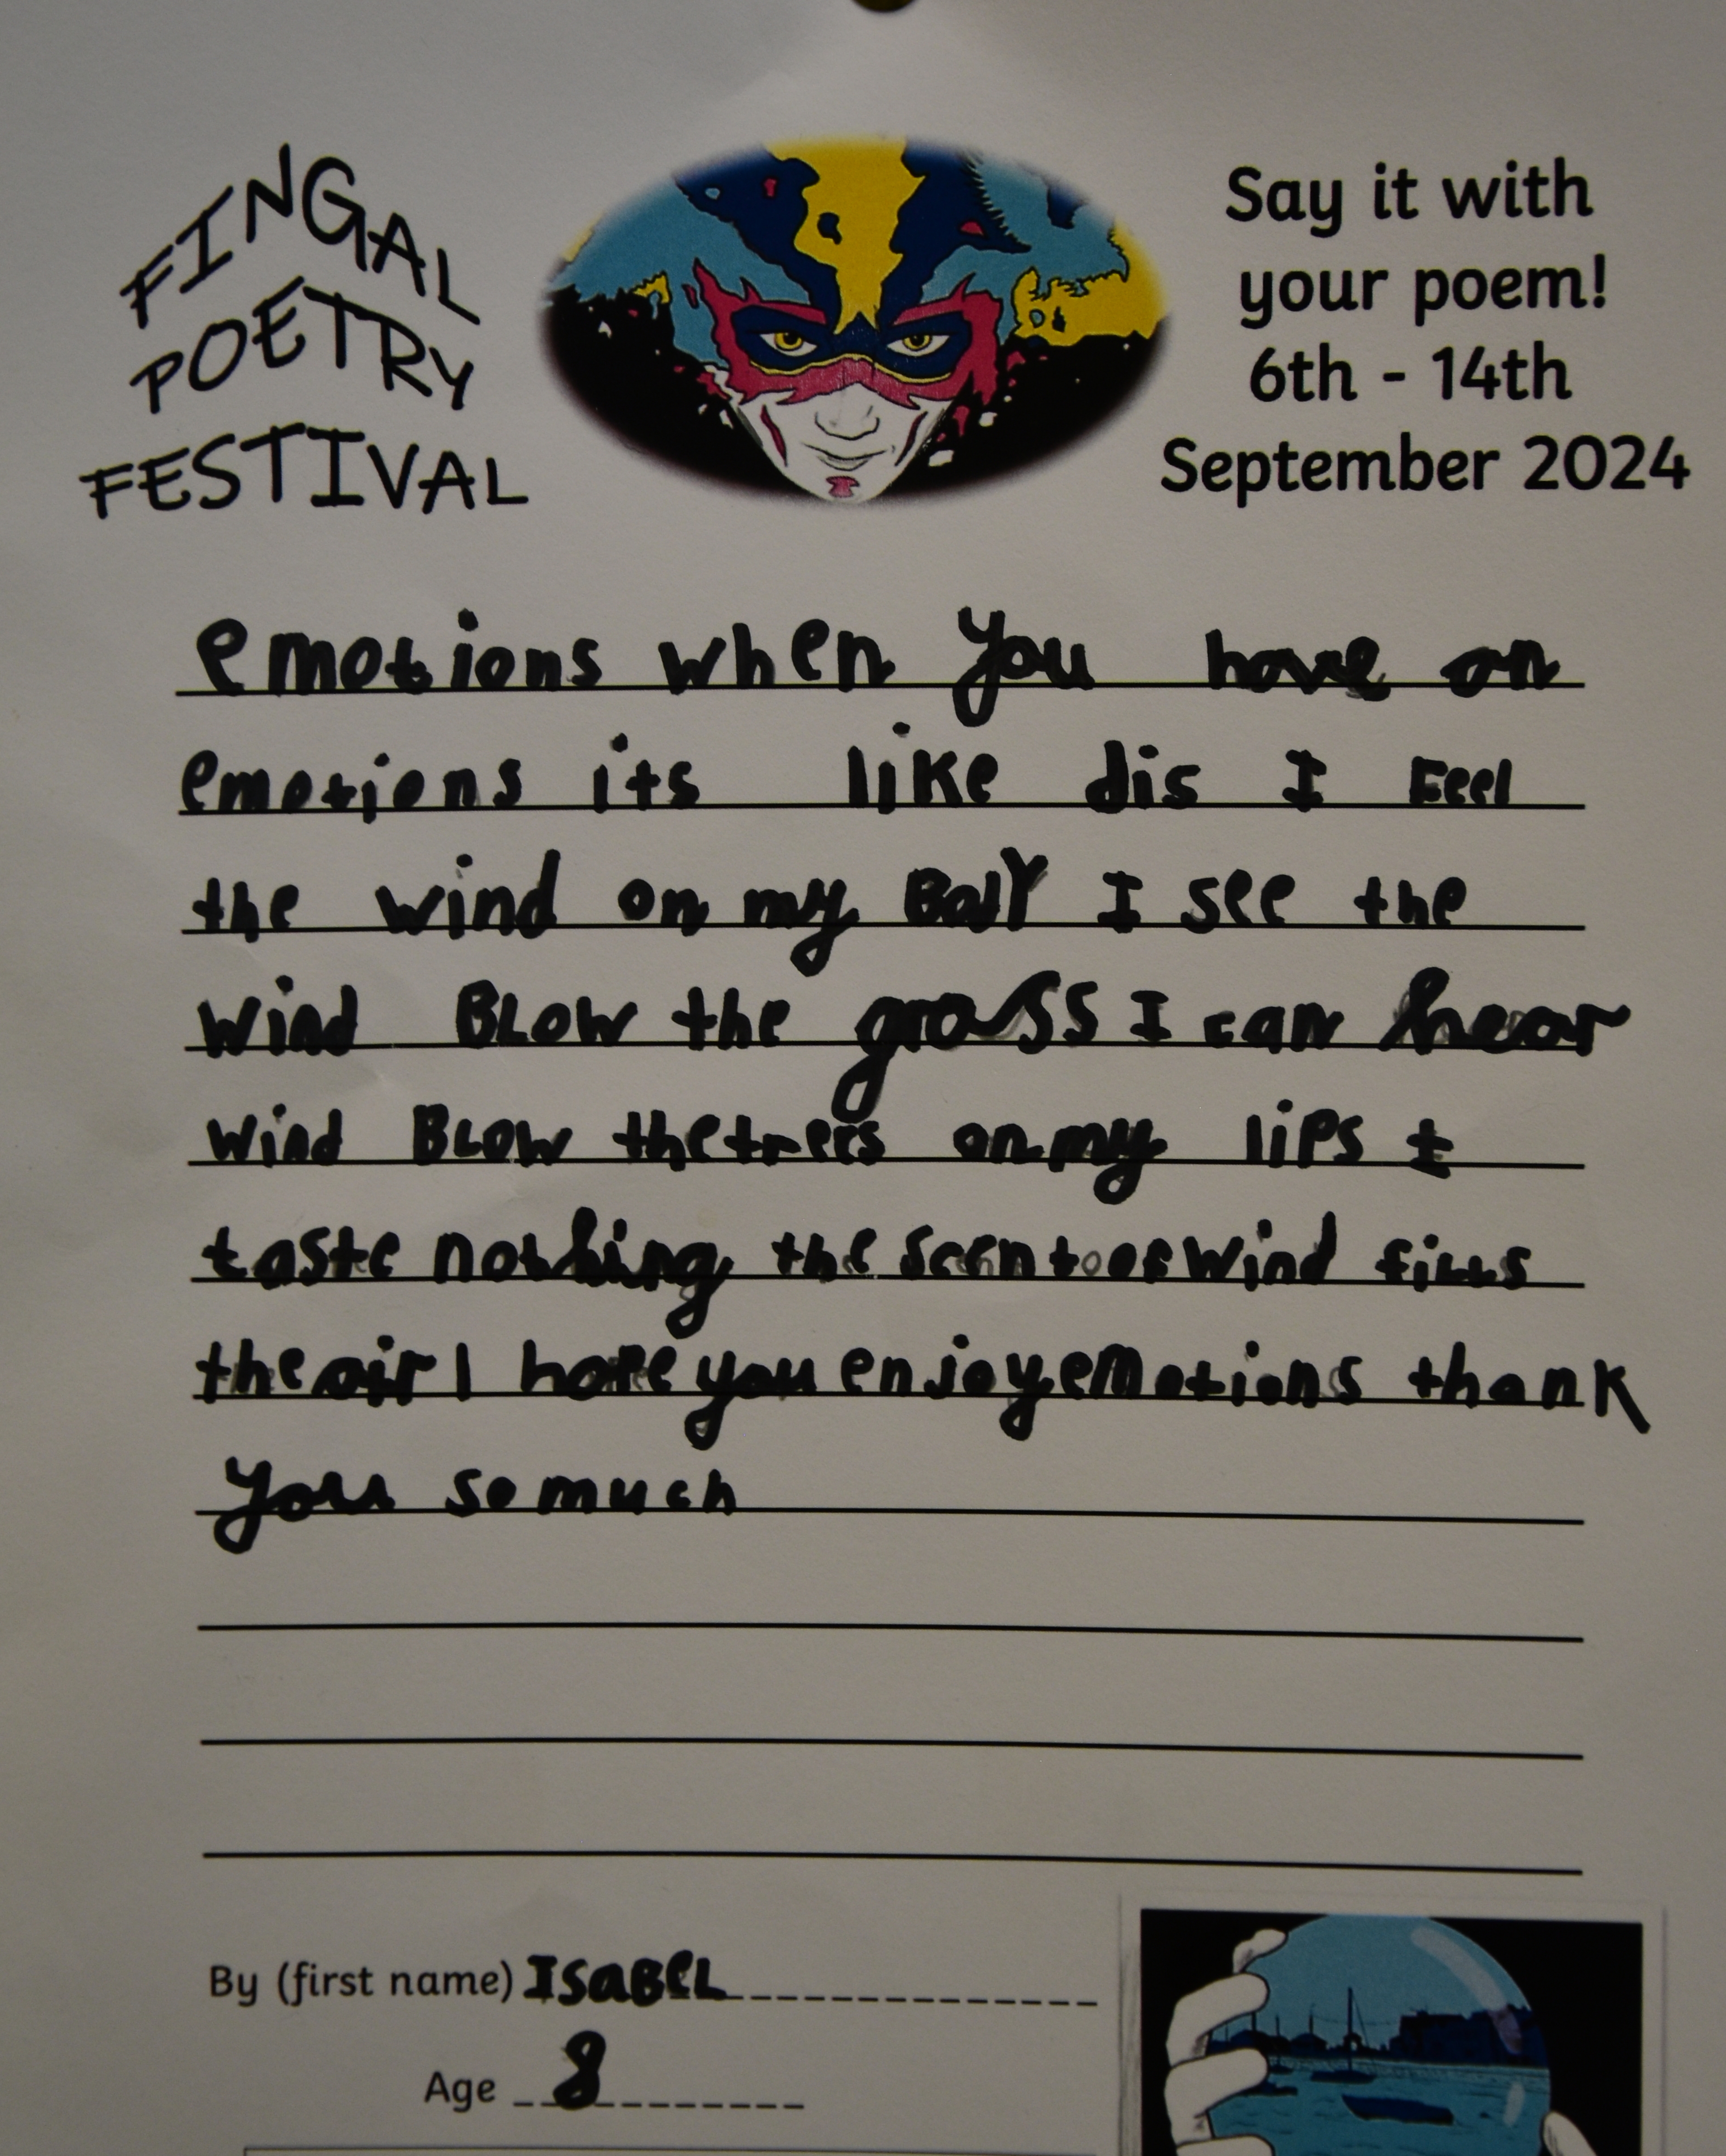 FINGAL
POETRY
FESTIVAL
Say it with
your poem!
6th - 14th
September 2024
emotions when you have an
emotions its like dis I Feel
the wind on my I see the
wind BLOW the grass I can hear
wind BLOW thetrees on my lips I
taste nothing the scent of wind fills
the air I hope you enjoy emotions thank
you so much
By (first name) ISaBeL
Age 8